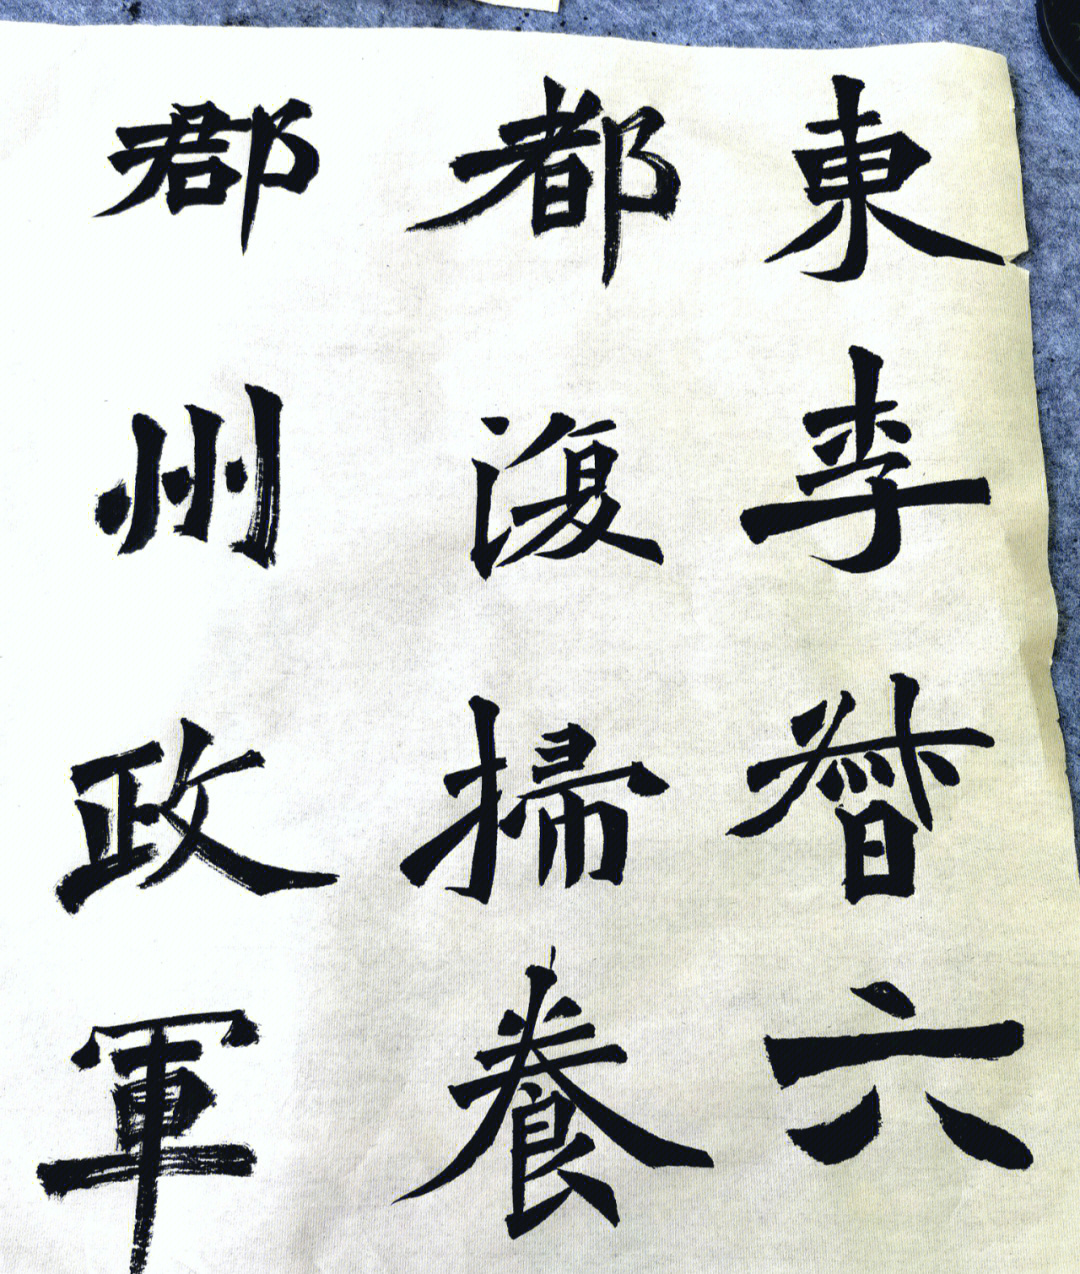 東李六
都復掃養
郡州政軍